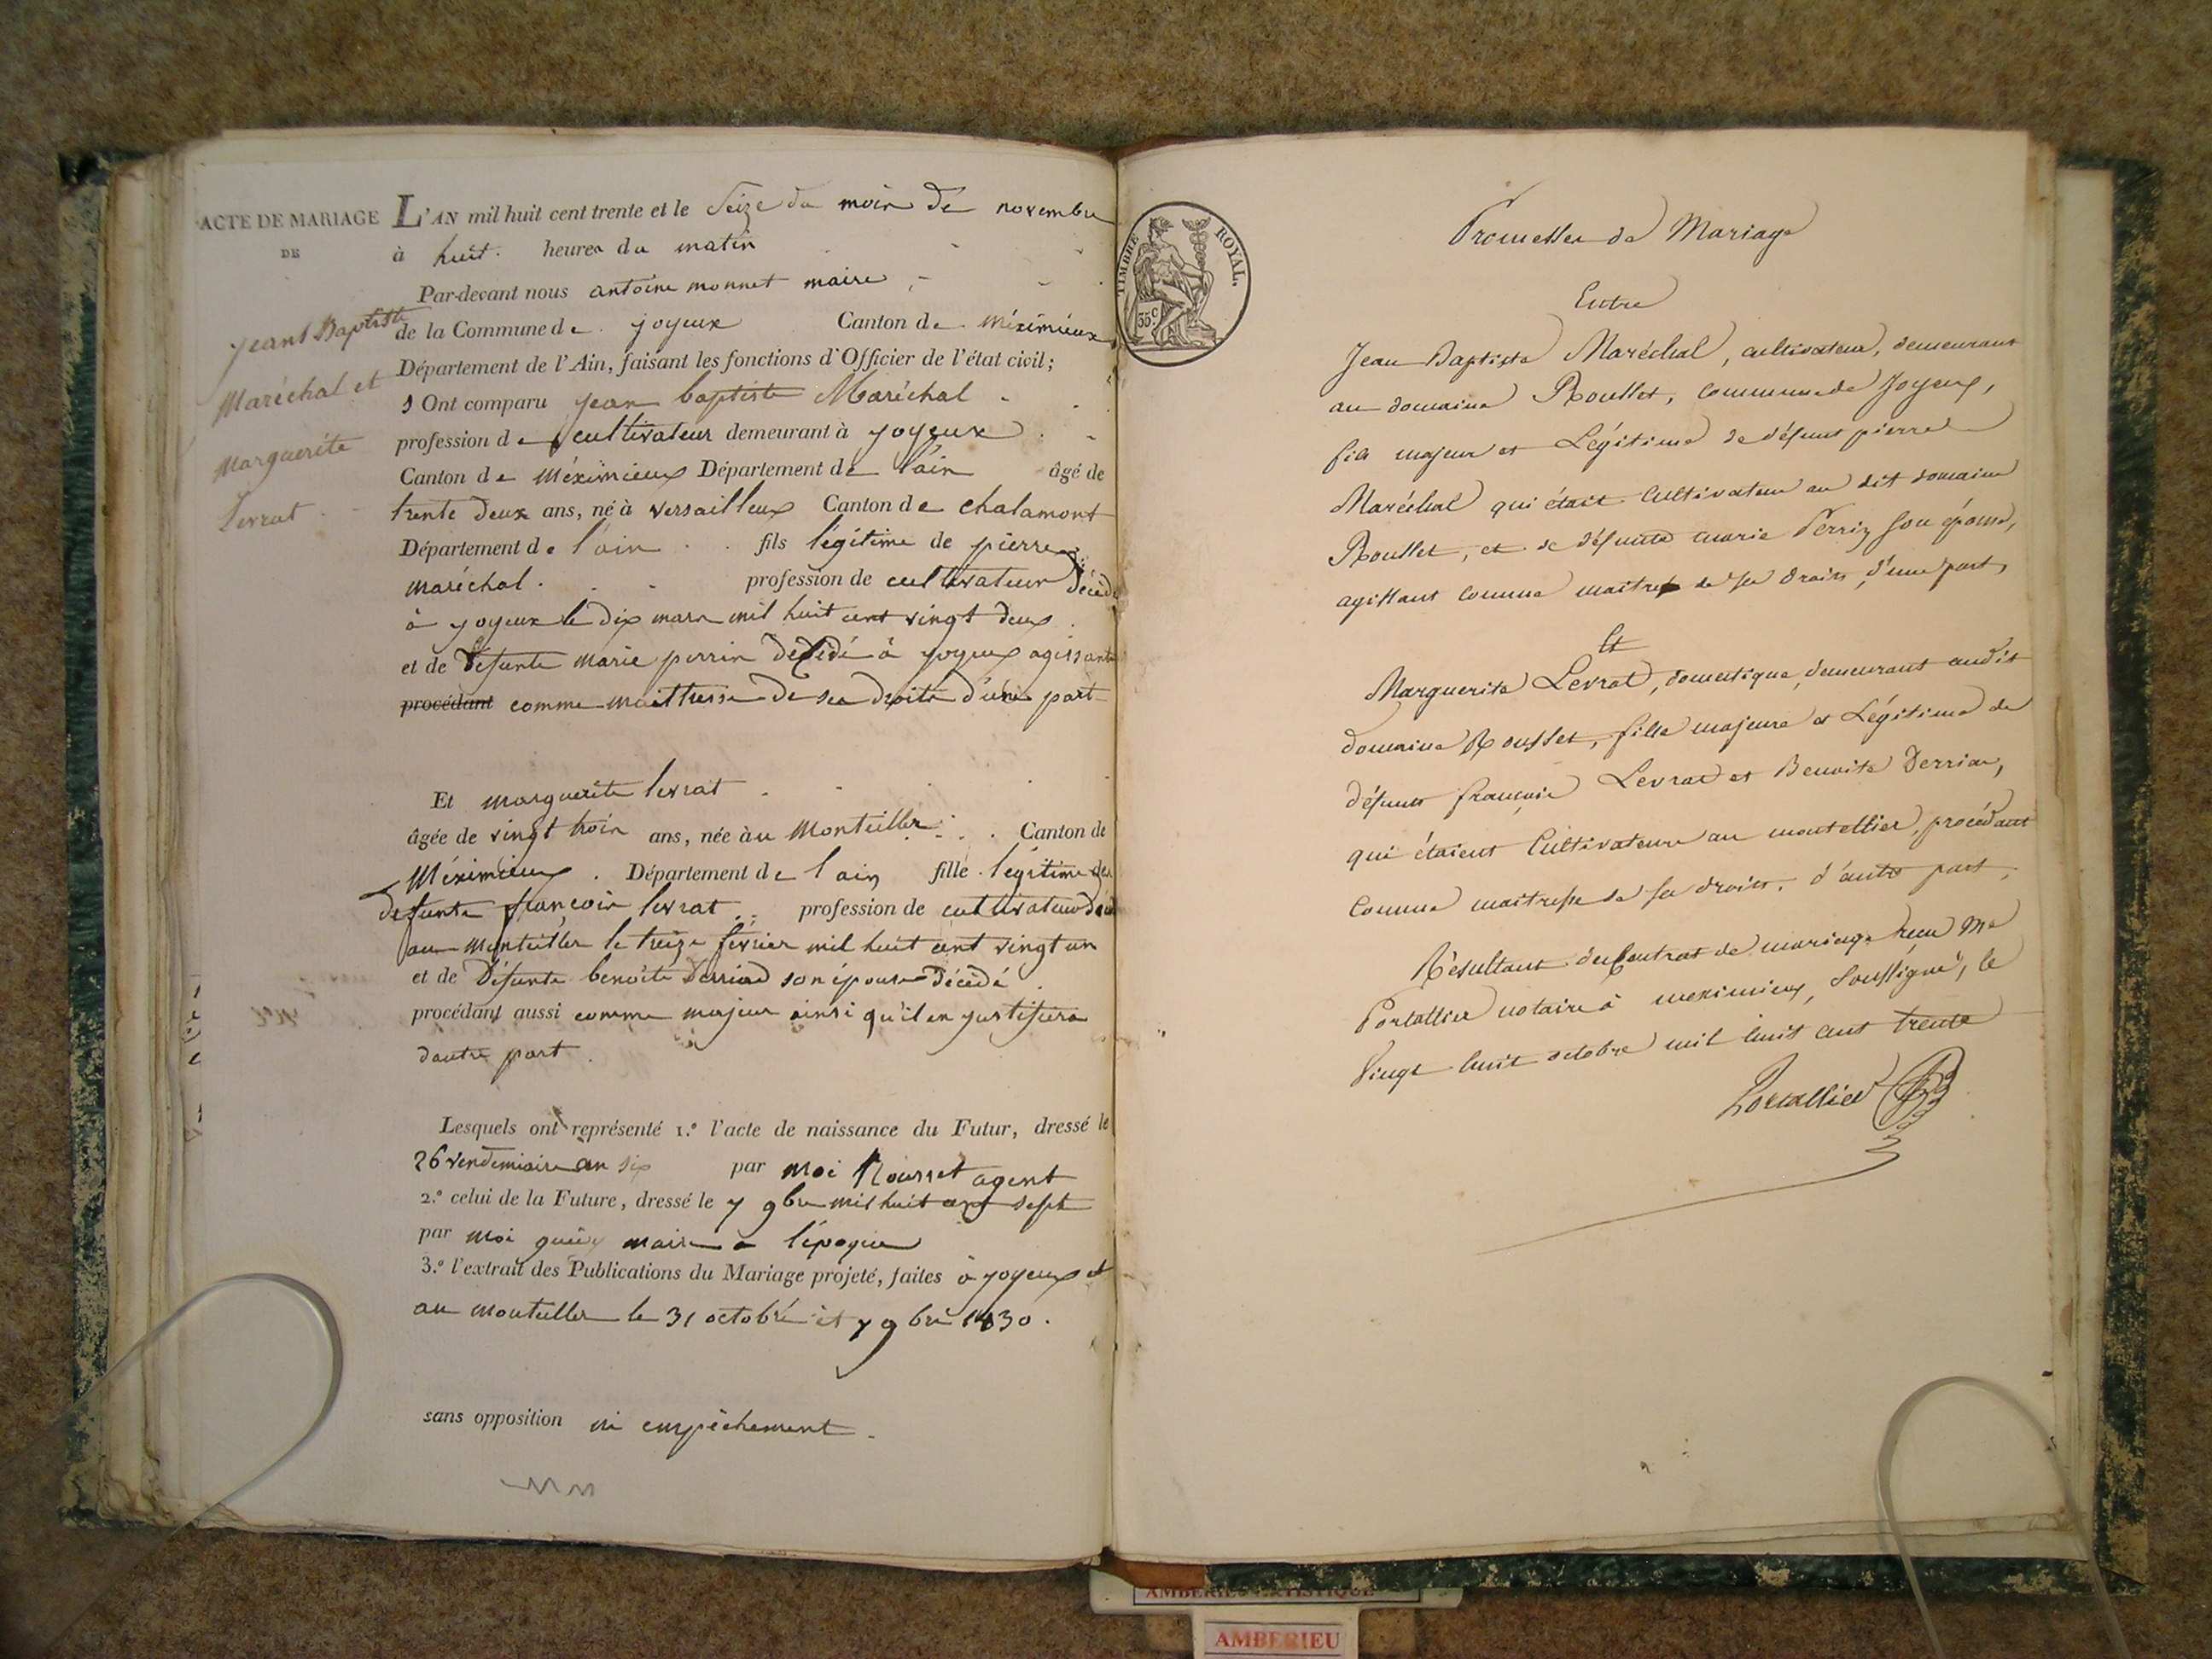 ACTE DE MARIAGE
DE
Jeant Baptiste
Maréchal et
Marguerite
Levrat
L'AN mil huit cent trente et le Seize du mois de novembre
à huit heures du matin
Par-devant nous antoine monnet maire
de la Commune de joyeux Canton de Méximieux
Département de l'Ain, faisant les fonctions d'Officier de l'état civil;
Ont comparu jean baptiste Maréchal
profession de cultivateur demeurant à joyeux
Canton de Méximieux Département de l'ain âgé de
trente deux ans, né à versailleux Canton de chalamont
Département de l'ain fils légitime de pierre
maréchal profession de cultivateur décédé
à joyeux le dix mars mil huit cent vingt deux
et de défunte marie perrin décédé à joyeux agissant
procédant comme maittresse de ses droits d'une part
Et marguerite levrat
âgée de vingt trois ans, née à u Montellier Canton de
Méximieux Département de l'ain fille légitime de
defunte françois levrat profession de cultivateur
au montellier le treize février mil huit cent vingt un
et de défunte benoite Derriad son épouse décédé
procédant aussi comme majeur ainsi qu'il en justifiera
dautre part
Lesquels ont représenté 1.º l'acte de naissance du Futur, dressé le
26 vendemiaire an six par moi Rousset agent
2.º celui de la Future, dressé le 7 9bre mil huit cent sept
par moi maire a l'époque
3.º l'extrait des Publications du Mariage projeté, faites à joyeux et
au montellier le 31 octobre et 7 9bre 1830.
sans opposition ni empêchement
TIMBRE ROYAL.
35c
Promesses de Mariage
Entre
Jean Baptiste Maréchal, cultivateur, demeurant
au domaine Rousset, commune de Joyeux,
fils majeur et Légitime de défunt pierre
Maréchal qui était Cultivateur au dit domaine
Rousset, et de défunte marie Perrin son épouse,
agissant comme maitre de ses droits, d'une part,
Et
Marguerite Levrat, domestique, demeurant audit
domaine Rousset, fille majeure et Légitime de
défunts françois Levrat et Benoite Derriat,
qui étaient Cultivateurs au montellier, procédant
comme maitresse de ses droits, d'autre part,
Résultant du Contrat de mariage reçu Me
Portallier notaire à meximieux, soussigné, le
Vingt huit octobre mil huit cent trente
Portallier
AMBERIEU ARTISTIQUE
AMBERIEU